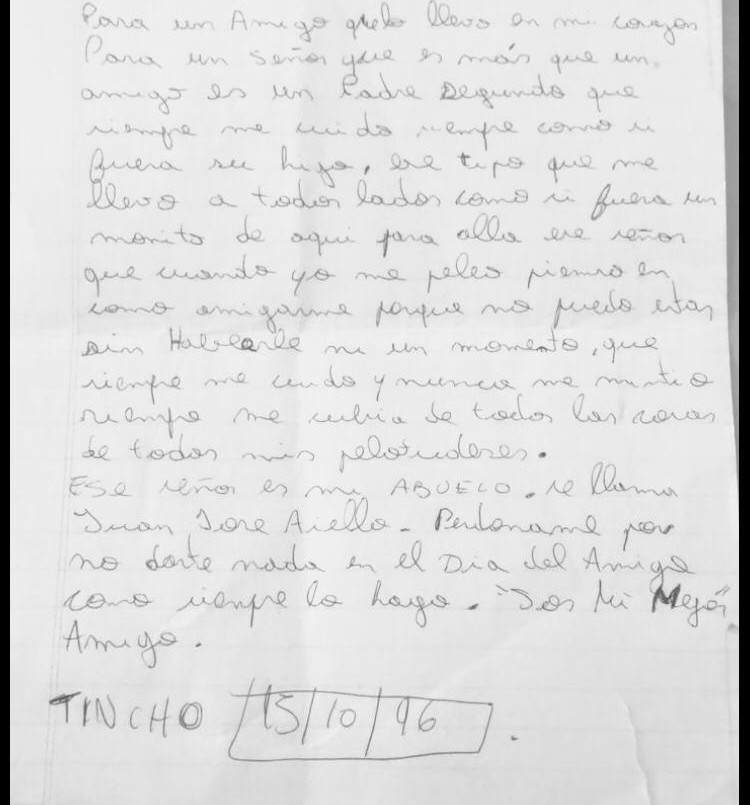 Para un Amigo quelo llevo en mi corazon
Para un señor que es más que un
amigo es un Padre Segundo que
siempre me cuido siempre como si
fuera su hijo, ese tipo que me
llevo a todos lados como si fuera un
monito de aqui para alla ese señor
que cuando yo me peleo pienso en
como amigarme porque no puedo estar
sin Hablarle ni un momento, que
siempre me cuido y nunca me mintio
siempre me cubria de todos las cosas
de todas mis pelotudeses.
ESe señor es mi ABUELO. se llama
Juan Jose Aiello - Perdoname por
no darte nada en el Dia del Amigo
como siempre lo hago. "Sos Mi Mejor"
Amigo.
TINCHO 15/10/96.